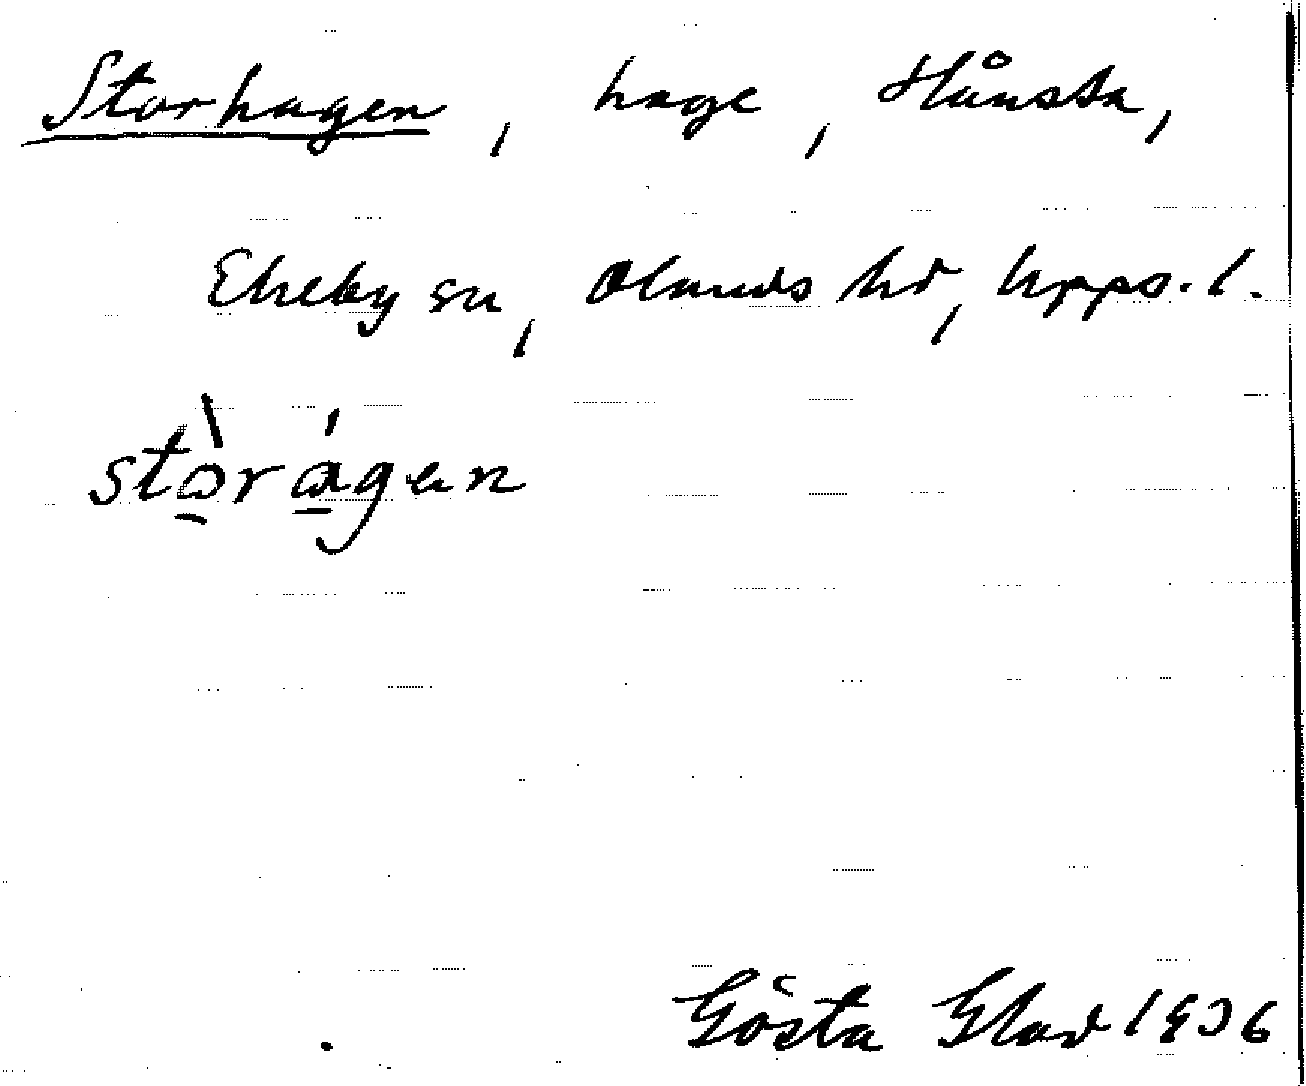 Storhagen, hage, Hånsta,
Ekeby sn, Olands hd, Upps. l.
stòrágen
Gösta Glad 1936